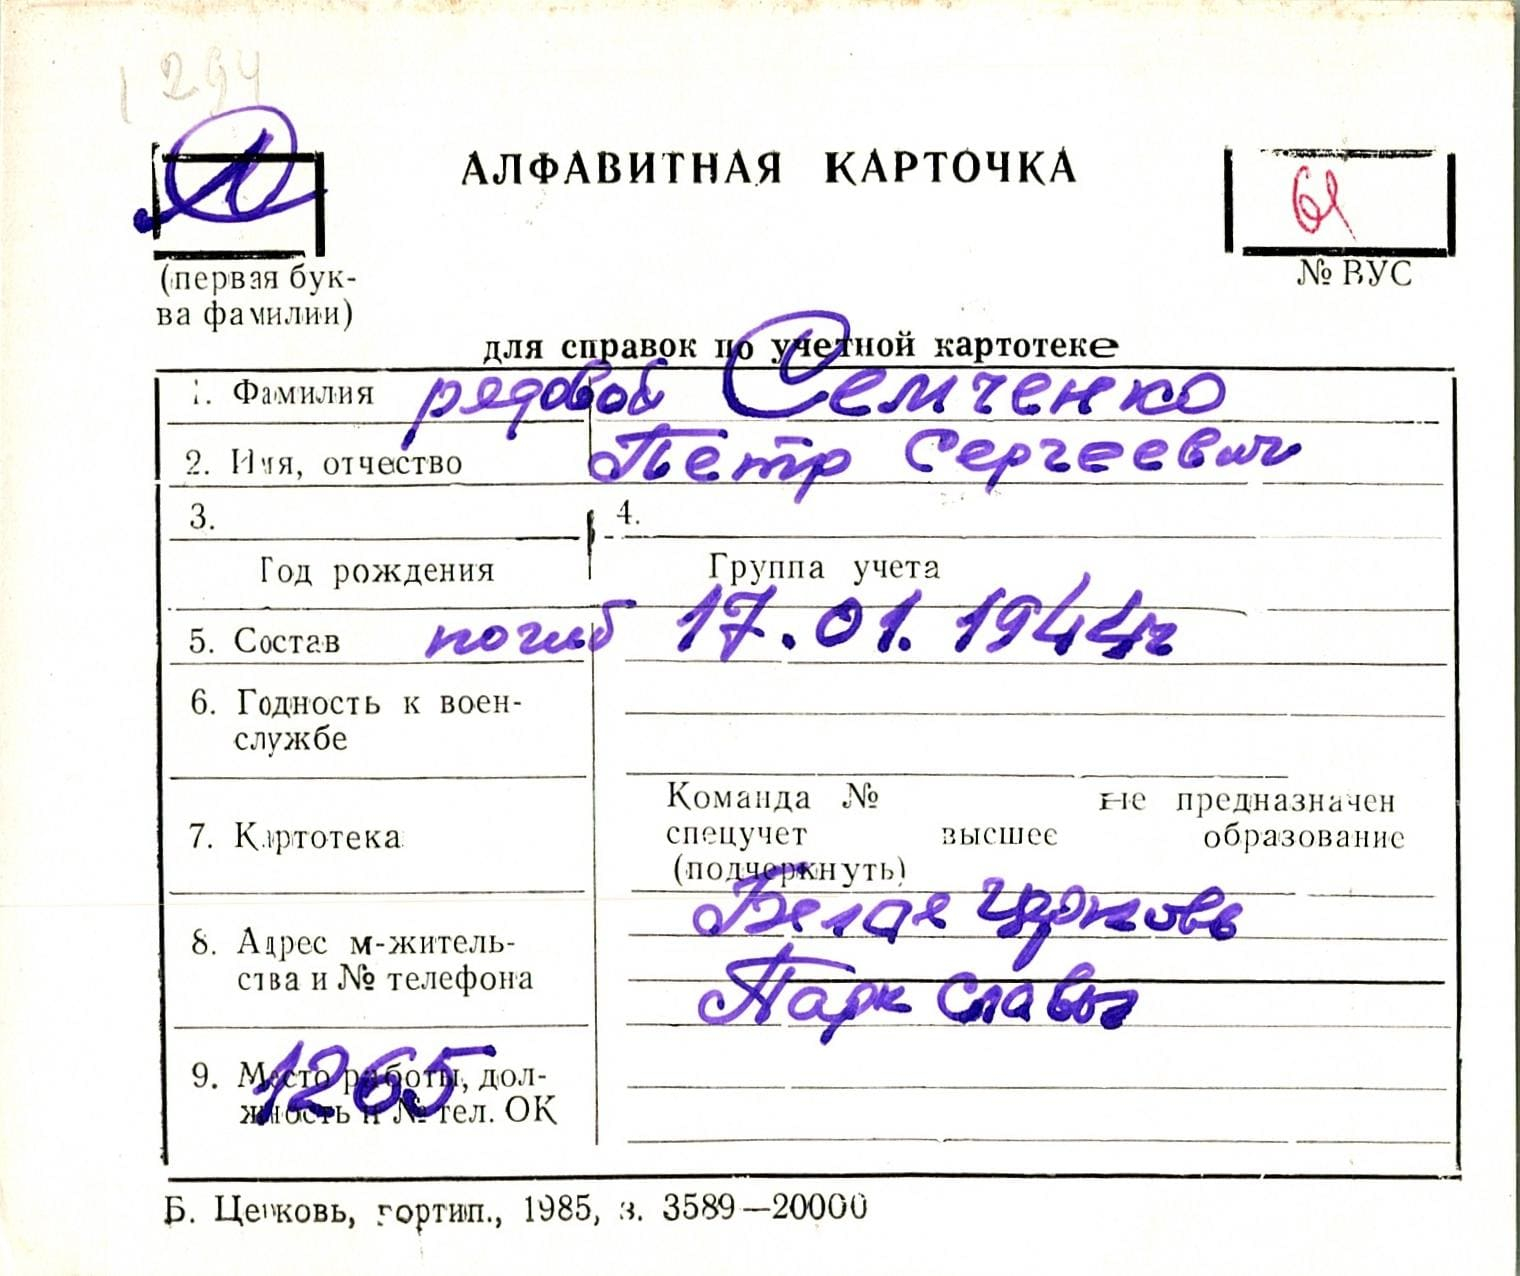 1294
Л
АЛФАВИТНАЯ КАРТОЧКА
61
(первая бук-
ва фамилии)
№ ВУС
для справок по учетной картотеке
1. Фамилия рядовой Семченко
2. Имя, отчество Пётр Сергеевич
3. 4.
Год рождения Группа учета
5. Состав погиб 17.01.1944г
6. Годность к воен-
службе
Команда № не предназначен
7. Картотека спецучет высшее образование
(подчеркнуть)
Белая Церковь
8. Адрес м-житель-
ства и № телефона Парк Славы
9. Место работы, дол-
жность и № тел. ОК
1265
Б. Церковь, гортип., 1985, з. 3589—20000